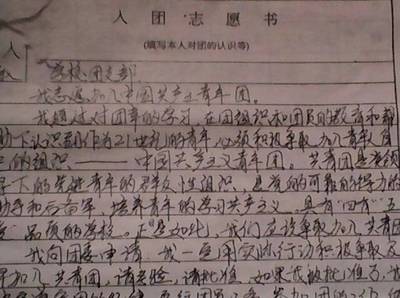 入团志愿书
(填写本人对团的认识等)
入
学校团支部:
我志愿加入中国共产主义青年团。
我通过对团章的学习,在团组织和团员的教育和帮
助下认识到作为21世纪的青年,必须积极争取加入青年人自
己的组织——中国共产主义青年团。共青团是党领
导下的先进青年的群众性组织,是党的可靠的得力的
助手和后备军,培养青年的学习共产主义,具有“四有”五
品质的学校。正是如此,我们应该争取加入共青团
我向团委申请,我一定用实际行动积极争取及
早加入共青团,请考验,请批准。如果我被批准了,我